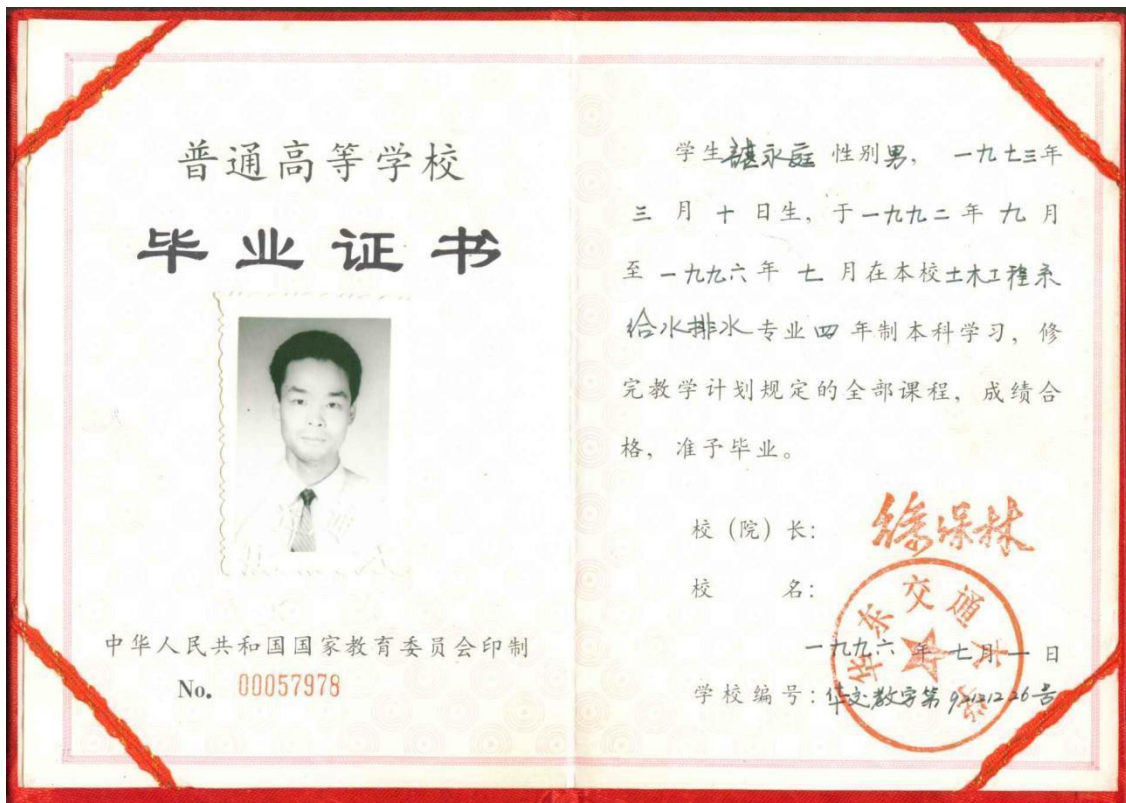 普通高等学校
毕业证书
中华人民共和国国家教育委员会印制
No. 00057978
学生谌永庭 性别男, 一九七三年
三月十日生, 于一九九二年九月
至一九九六年七月在本校土木工程系
给水排水专业四年制本科学习, 修
完教学计划规定的全部课程, 成绩合
格, 准予毕业。
校(院)长: 徐保林
校名:
华东交通大学
一九九六年七月一日
学校编号: 华交教字第 号